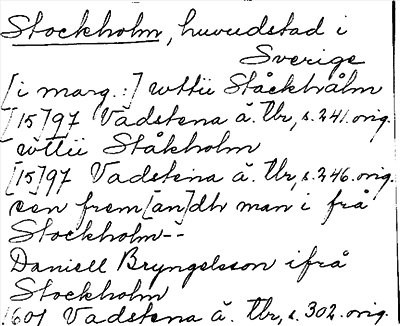 Stockholm, huvudstad i
Sverige
[i marg.:] vttii Ståckhålm
[15]97 Vadstena ä. Tbr, s. 241. orig.
vttii Ståkholm
[15]97 Vadstena ä. Tbr, s. 246. orig.
een frem[an]dh man i frå
Stockholm--
Daniell Bryngelsson ifrå
Stockholm
1601 Vadstena ä. Tbr, s. 302. orig.